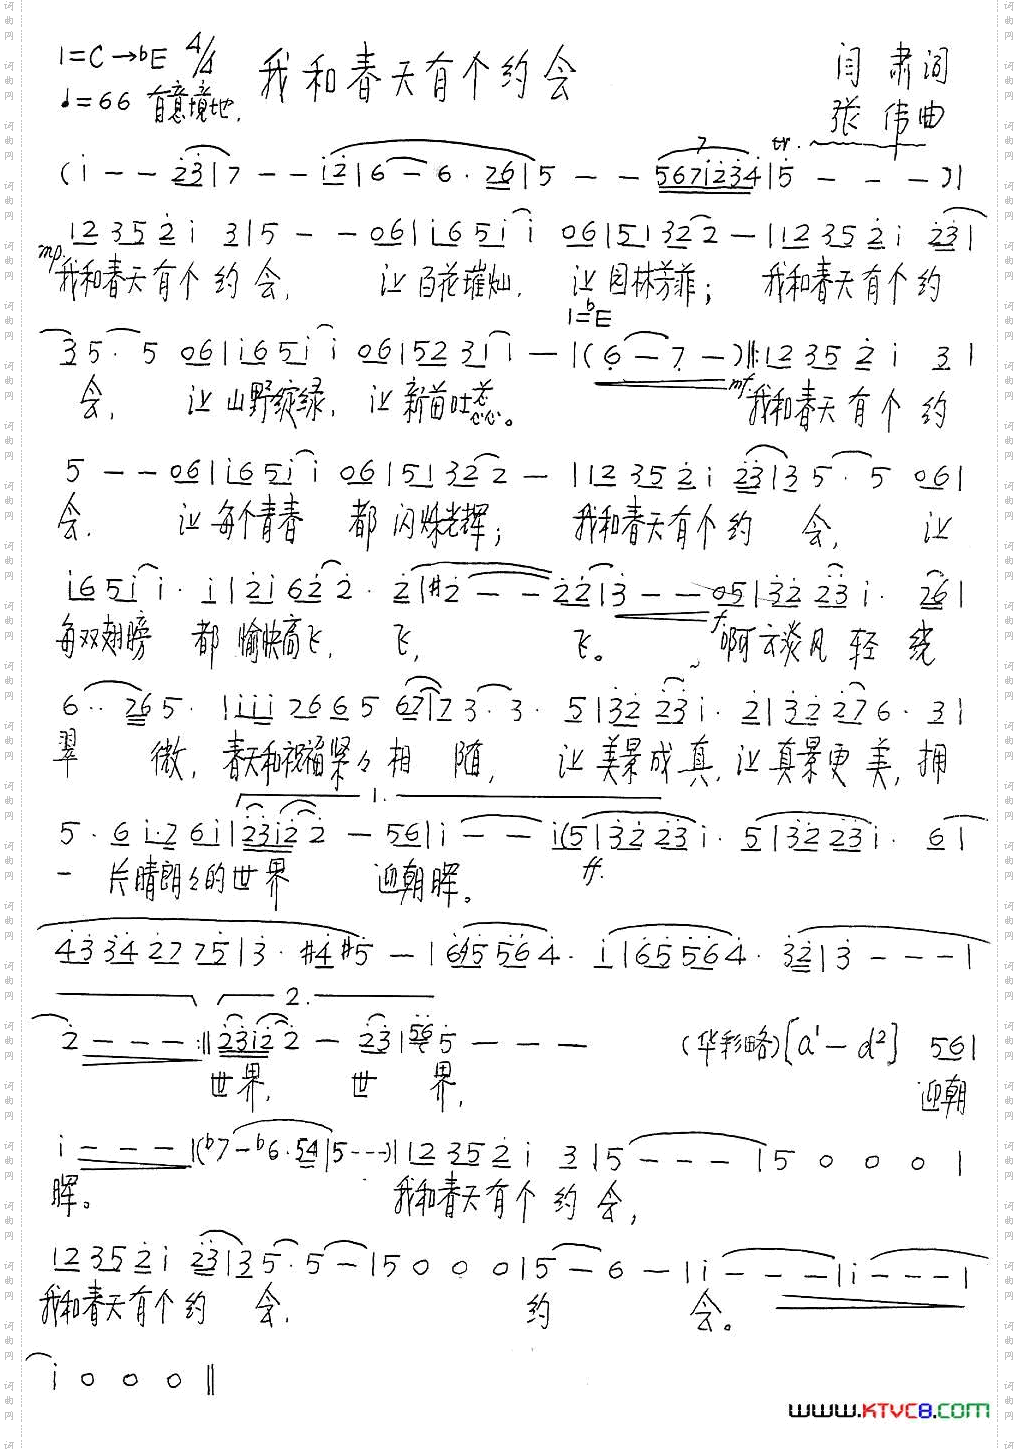 1=C→ᵇE 4/4 我和春天有个约会 闫肃词
♩=66 有意境地. 张伟曲
(i - - 2̇3̇|7 - - i2̇|6 - 6·7̲6̲|5 - - 567i2̇3̇4̇|5̇ - - -)|
12 35 2̇i 3|5 - - 06|i6 5i i 06|51 32 2 -|12 35 2̇i 2̇3̇|
mp. 我和春天有个约会, 让百花璀灿, 让园林芳菲; 我和春天有个约
1=ᵇE
3 5· 5 06|i6 5i i 06|52 31 1 -|(6 - 7 -)‖:12 35 2̇i 3|
会, 让山野绽绿, 让新苗吐蕊。 mf. 我和春天有个约
5 - - 06|i6 5i i 06|51 32 2 -|12 35 2̇i 2̇3̇|3 5· 5 06|
会. 让每个青春 都闪烁光辉; 我和春天有个约会, 让
i6 5i i· i|2̇i 62̇ 2̇· 2̇|#2̇ - - 2̇2̇|3̇ - - 05|3̇2̇ 2̇3̇ i· 2̇6|
每双翅膀 都愉快高飞, 飞, 飞。 f. 啊云淡风轻绕
6·· 265· |iii 2665 67|7 3· 3· 5|3̇2̇ 2̇3̇ i· 2̇|3̇2̇ 2̇7 6· 3|
翠微, 春天和祝福紧々相随, 让美景成真, 让真景更美, 拥
1.
5· 6 i·2̇ 6i|2̇3̇i2̇ 2̇ - 56|i - - i(5|3̇2̇ 2̇3̇ i· 5|3̇2̇ 2̇3̇ i· 6|
一片晴朗々的世界 迎朝晖。 ff.
4̇3̇ 3̇4̇ 2̇7 75|3̇· #4 #5 -|6̇5̇ 5̇6̇ 4̇· i|6̇5̇ 5̇6̇ 4̇· 3̇2̇|3̇ - - -|
2.
2̇ - - - :‖2̇3̇i2̇ 2̇ - 2̇3̇|5̇6̇ 5̇ - - - (华彩略)[a¹-d²] 56|
世界, 世界, 迎朝
i - - -|(ᵇ7-ᵇ6·54|5---)|12 35 2̇i 3|5 - - -|5 0 0 0|
晖。 我和春天有个约会,
12 35 2̇i 2̇3̇|3 5· 5 -|5 0 0 0|5 - 6 -|i - - -|i - - -|
我和春天有个约会, 约会。
i 0 0 0‖
www.KTVC8.com